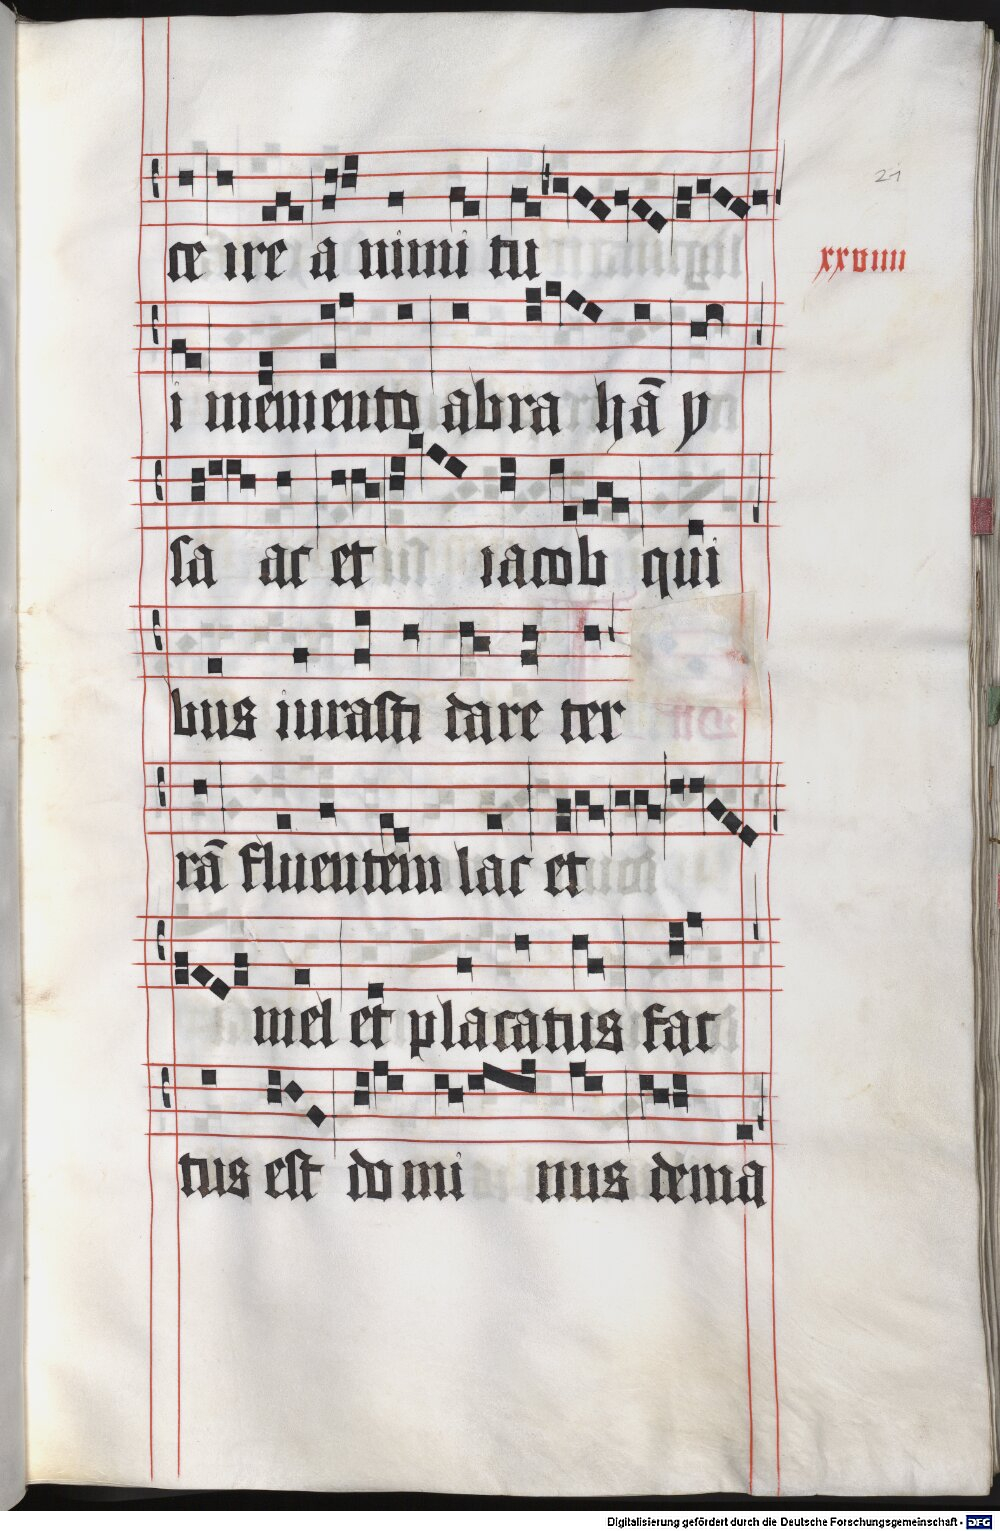 21
ce ire a nimi tu
xxviiii
i memento abra hā y
sa ac et iacob qui
bus iurasti dare ter
rā fluentem lac et
mel et placatus fac
tus est do mi nus dema
Digitalisierung gefördert durch die Deutsche Forschungsgemeinschaft - DFG